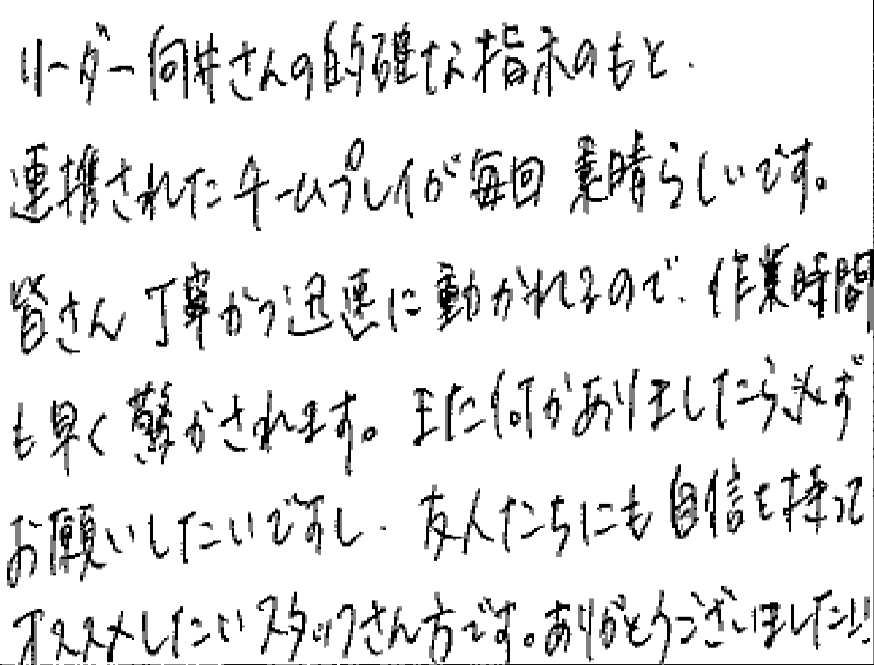 リーダー向井さんの的確な指示のもと、
連携されたチームプレイが毎回素晴らしいです。
皆さん丁寧かつ迅速に動かれるので、作業時間
も早く驚かされます。また何かありましたら必ず
お願いしたいですし、友人たちにも自信を持って
オススメしたいスタッフさん方です。ありがとうございました!!